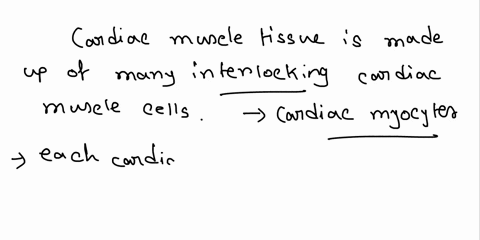 Cardiac muscle tissue is made
up of many interlocking cardiac
muscle cells. → Cardiac myocytes
→ each cardic